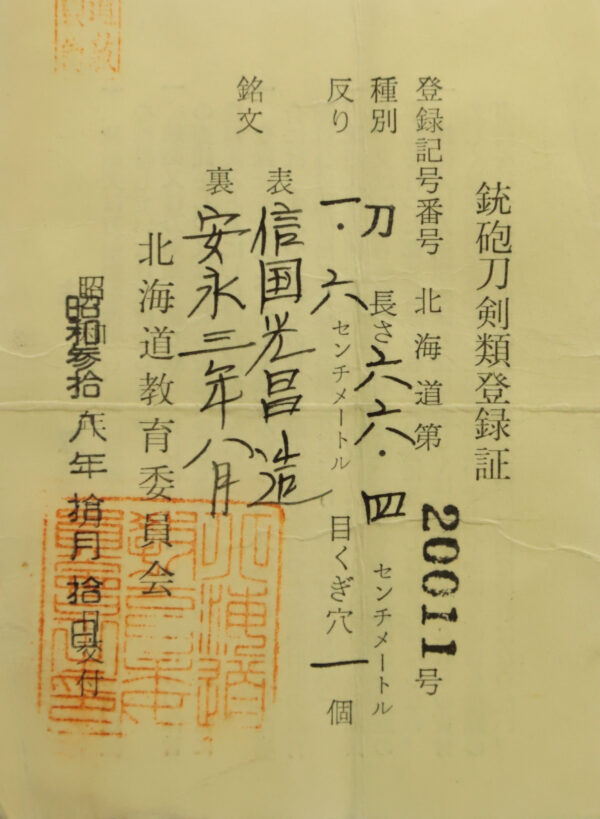 銃砲刀剣類登録証
登録記号番号 北海道第 20011 号
種別 刀 長さ 六六・四 センチメートル
反り 一・六 センチメートル 目くぎ穴 一 個
銘文 表 信国光昌造
裏 安永三年八月
北海道教育委員会
昭和参拾八年拾月拾日交付